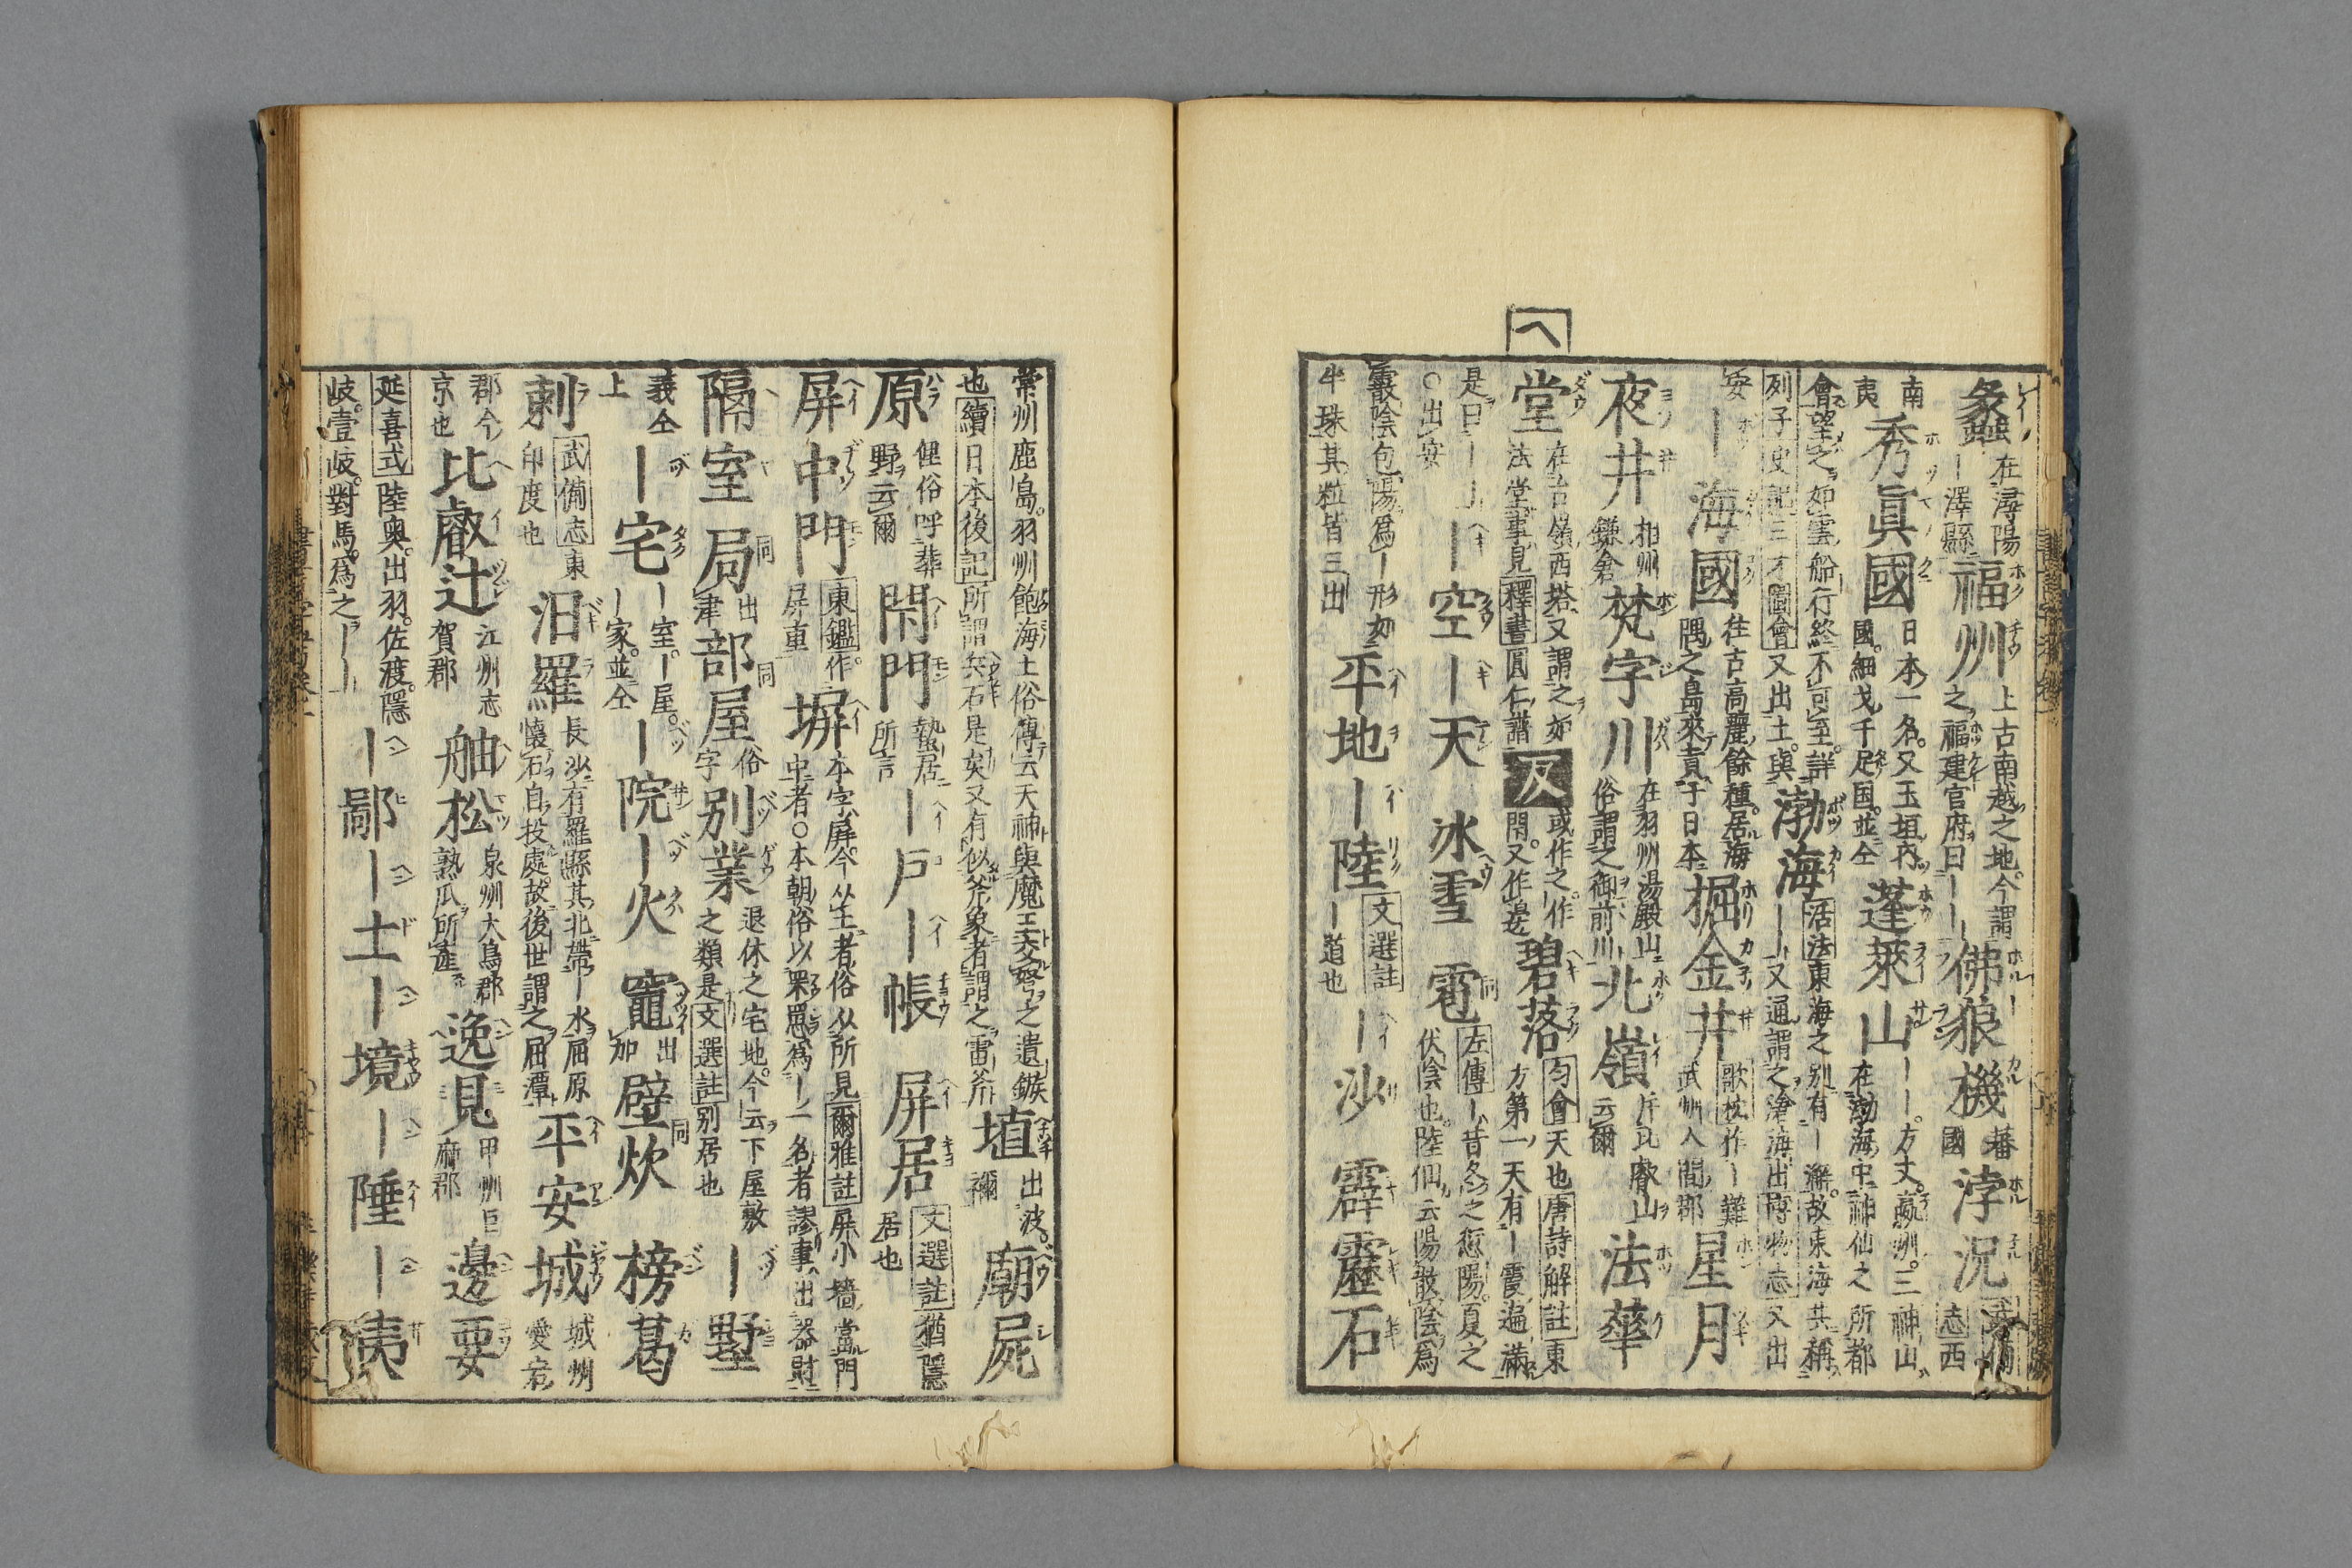 ヘ
蠡 在潯陽 ー澤縣 福州 上古南越之地今謂 之福建官府曰ーー 佛狼機 蕃國 浡泥 武備志西
南夷 秀眞國 日本一名又玉垣內 國細戈千足国並仝 蓬萊山 ーー方丈瀛洲三神山 在渤海中神仙之所都
會望之如雲船行終不可至詳 列子史記三才圖會又出土與 渤海 活法東海之别有ー澥故東海共稱 ーー又通謂之滄海出博物志又出
安 ー海國 往古高麗餘種居海 隅之島來貢于日本 掘金井 歌枕作ー難 武州入間郡 星月
夜井 相州 鎌倉 梵字川 在羽州湯殿山 俗謂之御前川 北嶺 斥比叡山 云爾 法華
堂 在台嶺西塔又謂之如 法堂事見釋書圓仁譜 反 或作之作 閇又作邊 碧落 匀會天也唐詩解註東 方第一天有ー霞遍滿
是曰ーー ○出安 ー空ー天 氷雪 雹 左傳ー昔冬之愆陽夏之 伏陰也陸佃云陽散陰爲
霰陰包陽爲ー形如 半珠其粒皆三出 平地ー陸 文選註 ー道也 ー沙 霹靂石
常州鹿島羽州飽海土俗傳云天神與魔王交弩之遺鏃 也續日本後記所謂兵石是矣又有似斧象者謂之雷斧 埴 出波 禰 廟屍
原 俚俗呼葬 野云爾 閇門 蟄居 所言 ー戸ー帳 屏居 文選註猶隱 居也
屏中門 東鑑作 屏重 塀 本字屏今从土者俗从所見爾雅註屏小墻當門 中者○本朝俗以罘罳爲ー一名者謬事出器財
隔室 局 出 津 部屋 俗 字 别業 退休之宅地今云下屋敷 之類是文選註别居也 ー墅
義仝 上 ー宅 ー室ー屋 ー家並仝 ー院ー火 竈 出 加 壁炊 榜葛
剌 武備志東 印度也 汨羅 長沙有羅縣其北帶ー水屈原 懷石自投處故後世謂之屈潭 平安城 城州 愛宕
郡今 京也 比叡辻 江州志 賀郡 舳松 泉州大鳥郡 熟瓜所産 逸見 甲州巨 麻郡 邊要
延喜式陸奧出羽佐渡隱 岐壹岐對馬爲之ーー ー鄙ー土ー境ー陲ー夷